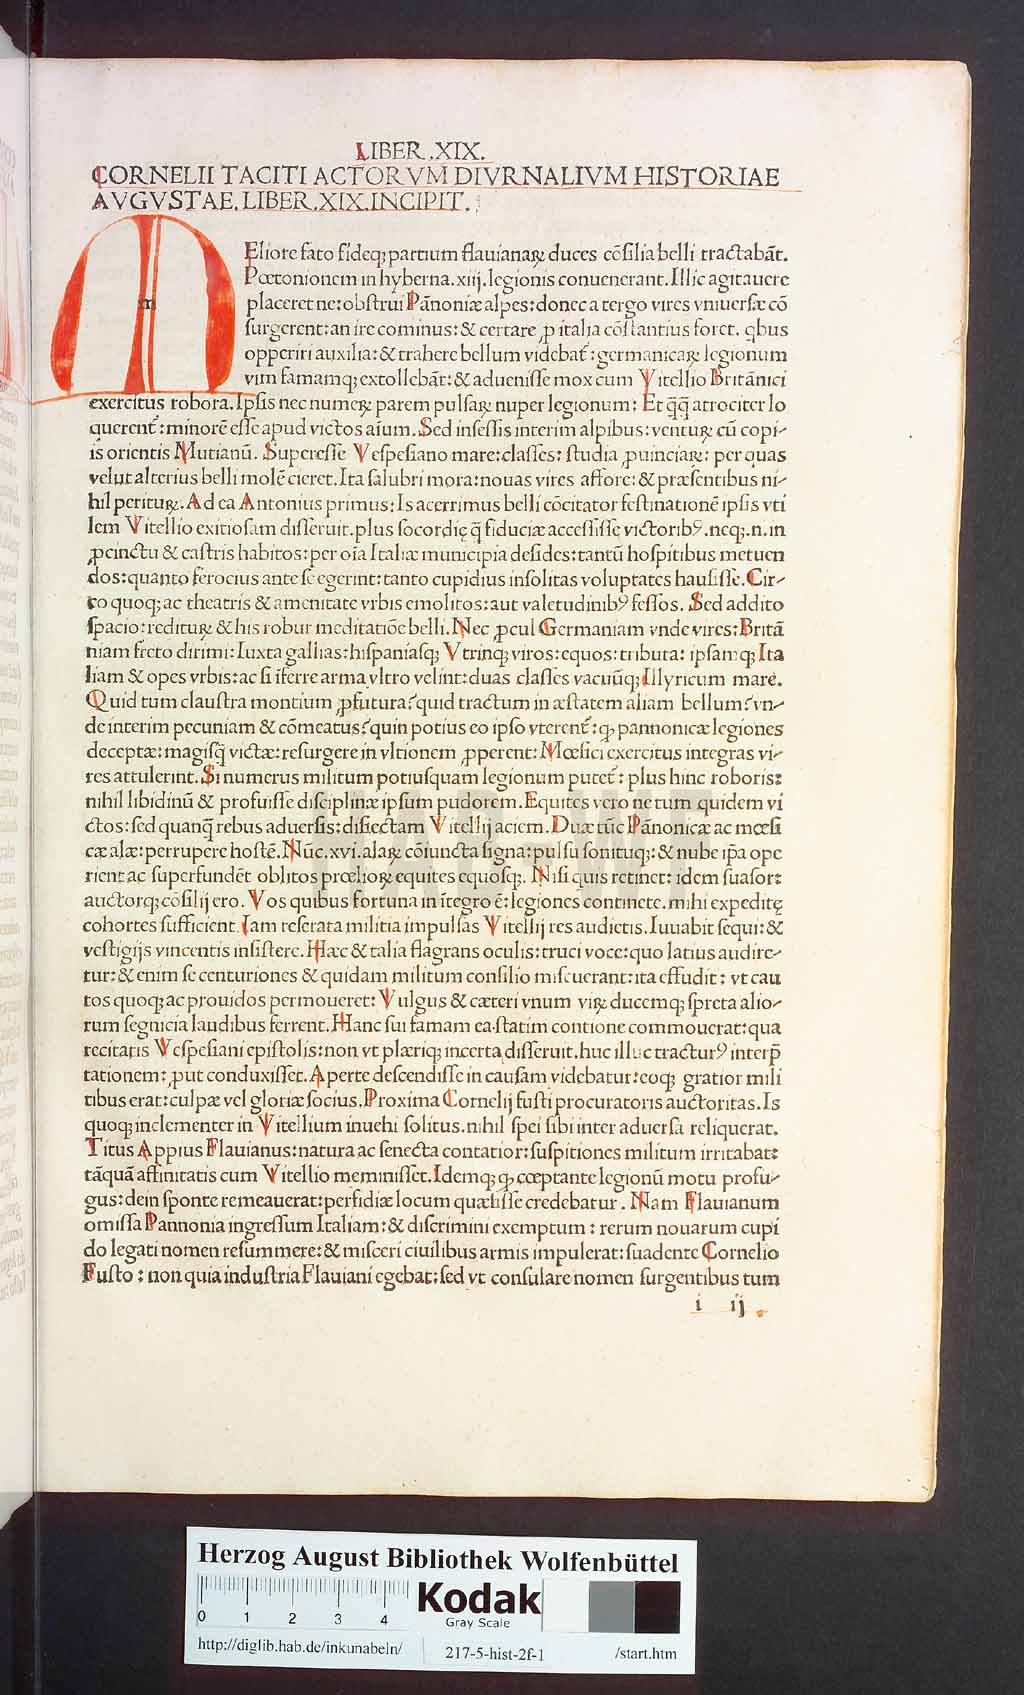 LIBER .XIX.
CORNELII TACITI ACTORVM DIVRNALIVM HISTORIAE
AVGVSTAE. LIBER .XIX. INCIPIT.
m
Eliore fato fideq; partium flauianaꝝ duces cõsilia belli tractabãt.
Pœtonionem in hyberna .xiij. legionis conuenerant. Illic agitauere
placeret ne: obstrui Pãnoniæ alpes: donec a tergo vires vniuersæ cõ
surgerent: an ire cominus: & certare ꝓ italia cõstantius foret. qbus
opperiri auxilia: & trahere bellum videbat᷑: germanicaꝝ legionum
vim famamq; extollebãt: & aduenisse mox cum Vitellio Britãnici
exercitus robora. Ipsis nec numeꝝ parem pulsaꝝ nuper legionum: Et q̃q̃ atrociter lo
querent᷑: minorẽ esse apud victos aíum. Sed insessis interim alpibus: ventuꝝ cũ copi-
is orientis Mutianũ. Superesse Vespesiano mare: classes: studia ꝓuinciaꝝ: per quas
velut alterius belli molẽ cieret. Ita salubri mora: nouas vires affore: & præsentibus ni-
hil perituꝝ. Ad ea Antonius primus: Is acerrimus belli cõcitator festinationẽ ipsis vti
lem Vitellio exitiosam disseruit. plus socordię q̃ fiduciæ accessisse victoribꝰ. neq;. n. in
ꝓcinctu & castris habitos: per oía Italiæ municipia desides: tantũ hospitibus metuen
dos: quanto ferocius ante se egerint: tanto cupidius insolitas voluptates hausisse. Cir-
co quoq; ac theatris & amenitate vrbis emolitos: aut valetudinibꝰ fessos. Sed addito
spacio: redituꝝ & his robur meditatiõe belli. Nec ꝓcul Germaniam vnde vires: Britã
niam freto dirimi: Iuxta gallias: hispaniasq; Vtrinq; viros: equos: tributa: ipsamq; Ita
liam & opes vrbis: ac si ĩferre arma vltro velint: duas classes vacuũq; Illyricum mare.
Quid tum claustra montium ꝓfutura? quid tractum in æstatem aliam bellum? vn-
de interim pecuniam & cõmeatus? quin potius eo ipso vterent᷑: q; pannonicæ legiones
deceptæ: magisq̃ victæ: resurgere in vltionem ꝓperent: Mœsici exercitus integras vi-
res attulerint. Si numerus militum potiusquam legionum putet᷑: plus hinc roboris:
nihil libidinũ & profuisse disciplinæ ipsum pudorem. Equites vero ne tum quidem vi
ctos: sed quanq̃ rebus aduersis: disiectam Vitellij aciem. Duæ tũc Pãnonicæ ac mœsi
cæ alæ: perrupere hostẽ. Nũc .xvi. alaꝝ cõiuncta signa: pulsu sonituq;: & nube ip̃a ope
rient ac superfundẽt oblitos prœlioꝝ equites equosq;. Nisi quis retinet: idem suasor:
auctorq; cõsilij ero. Vos quibus fortuna in ĩtegro ẽ: legiones continete. mihi expeditę
cohortes sufficient. Iam reserata militia impulsas Vitellij res audietis. Iuuabit sequi: &
vestigijs vincentis insistere. Hæc & talia flagrans oculis: truci voce: quo latius audire-
tur: & enim se centuriones & quidam militum consilio miscuerant: ita effudit: vt cau
tos quoq; ac prouidos permoueret: Vulgus & cæteri vnum viꝝ ducemq; spreta alio-
rum segnicia laudibus ferrent. Hanc sui famam ea statim contione commouerat: qua
recitatis Vespesiani epistolis: non vt plæriq; incerta disseruit. huc illuc tracturꝰ interp̃
tationem: ꝓut conduxisset. Aperte descendisse in causam videbatur: eoq; gratior mili
tibus erat: culpæ vel gloriæ socius. Proxima Cornelij fusti procuratoris auctoritas. Is
quoq; inclementer in Vitellium inuehi solitus. nihil spei sibi inter aduersa reliquerat.
Titus Appius Flauianus: natura ac senecta contatior: suspitiones militum irritabat:
tãquã affinitatis cum Vitellio meminisset. Idemq; q; cœptante legionũ motu profu-
gus: dein sponte remeauerat: perfidiæ locum quæsisse credebatur. Nam Flauianum
omissa Pannonia ingressum Italiam: & discrimini exemptum: rerum nouarum cupi
do legati nomen resummere: & misceri ciuilibus armis impulerat: suadente Cornelio
Fusto: non quia industria Flauiani egebat: sed vt consulare nomen surgentibus tum
i ij
HAB-WF
Herzog August Bibliothek Wolfenbüttel
0 1 2 3 4
Kodak
Gray Scale
http://diglib.hab.de/inkunabeln/
217-5-hist-2f-1
/start.htm